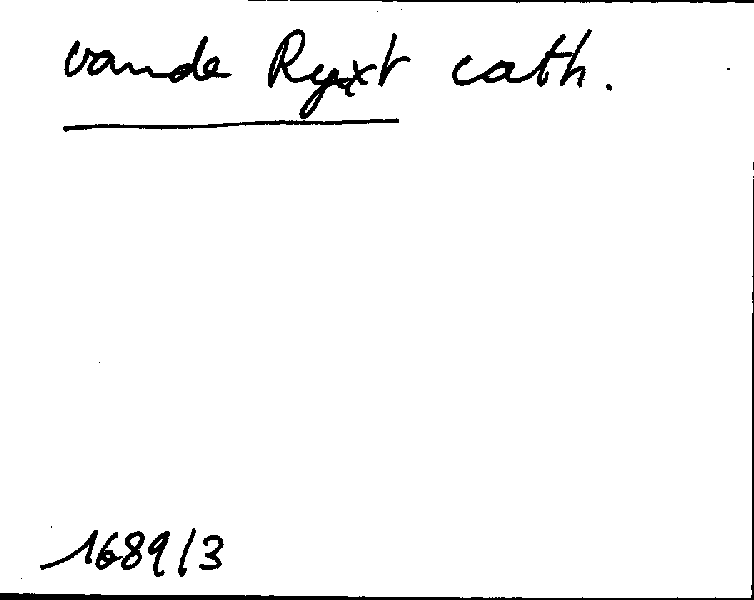 vande Ryxt cath.
1689/3